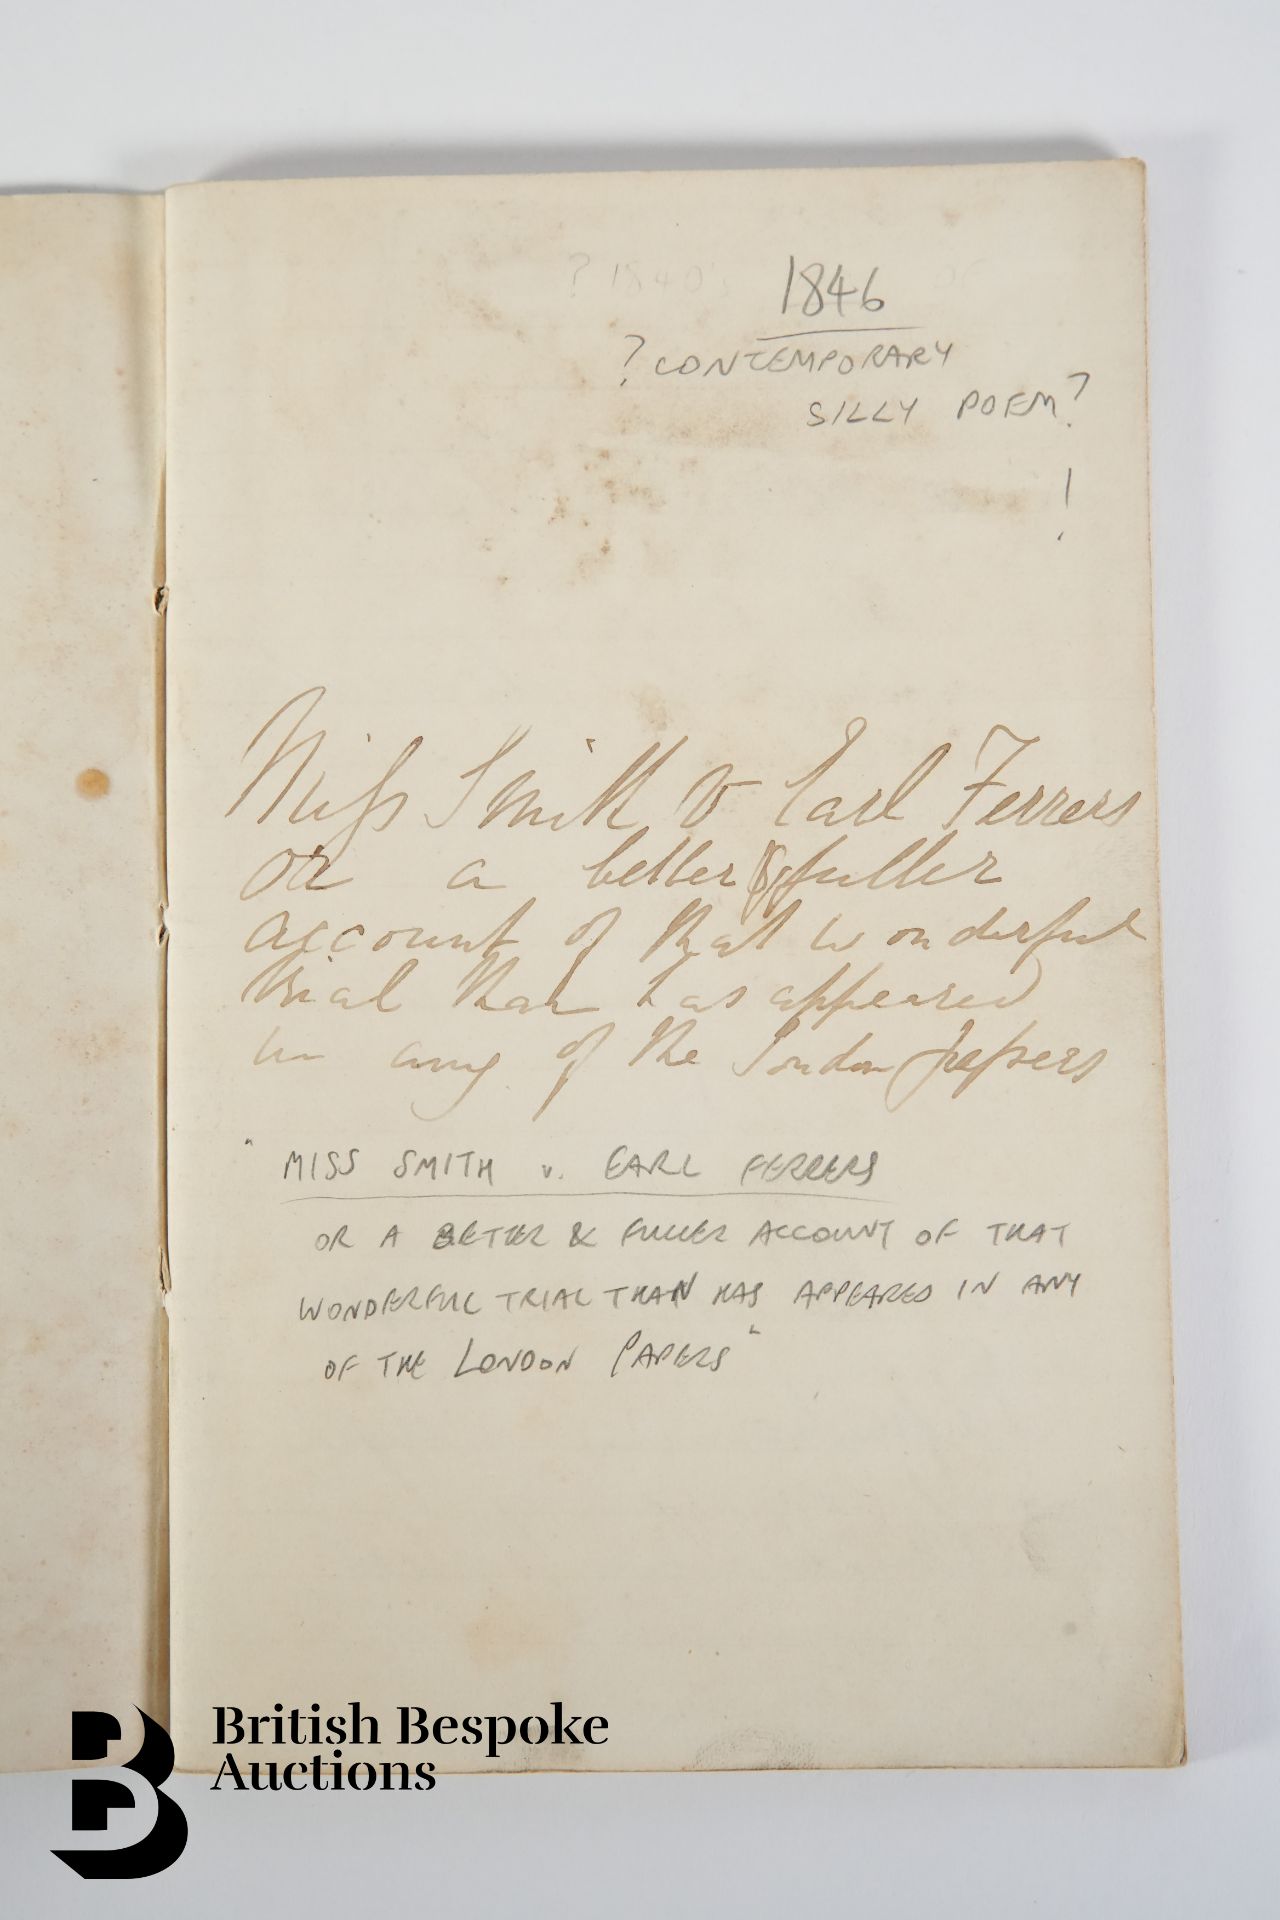 ? 1840's
1846
? CONTEMPORARY
SILLY POEM?
!
Miss Smith v Earl Ferrers
or a better & fuller
account of that wonderful
trial than has appeared
in any of the London papers
"MISS SMITH v. EARL FERRERS
OR A BETTER & FULLER ACCOUNT OF THAT
WONDERFUL TRIAL THAN HAS APPEARED IN ANY
OF THE LONDON PAPERS"
British Bespoke
Auctions